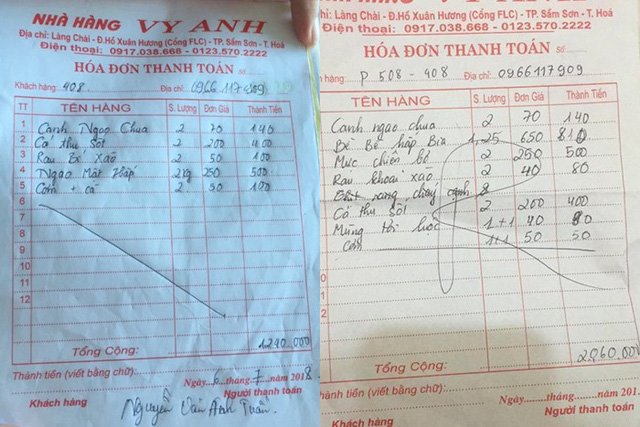 NHÀ HÀNG VY ANH
Địa chỉ: Làng Chài - Đ.Hồ Xuân Hương (Cổng FLC) - TP. Sầm Sơn - T. Hoá
Điện thoại: 0917.038.668 - 0123.570.2222
HÓA ĐƠN THANH TOÁN Số:
Khách hàng: 408. Địa chỉ: 0966 117 909
TT TÊN HÀNG S. Lượng Đơn Giá Thành Tiền
1 Canh Ngao Chua 2 70 140
2 Cá thu sốt 2 200 400
3 Rau Bí Xào 2 50 100
4 Ngao Mật Hấp 2kg 250 500
5 Cơm + cà 2 50 100
6
7
8
9
10
11
12
Tổng Cộng: 1.240.000
Thành tiền (viết bằng chữ):
Ngày 6 tháng 7 năm 2018
Khách hàng Người thanh toán
Nguyễn Văn Anh Tuấn
Địa chỉ: Làng Chài - Đ.Hồ Xuân Hương (Cổng FLC) - TP. Sầm Sơn - T. Hoá
Điện thoại: 0917.038.668 - 0123.570.2222
HÓA ĐƠN THANH TOÁN Số:
P 508 - 408 Địa chỉ: 0966117909
TÊN HÀNG S. Lượng Đơn Giá Thành Tiền
Canh ngao chua 2 70 140
Bề Bề hấp Bia 1,25 650 810
Mực chiên bơ 2 250 500
Rau khoai xào 2 40 80
canh
Cá thu sốt 2 200 400
Mừng tơi luộc 1+1 40 80
Cơm 1+1 50 50
Tổng Cộng: 2,060,000
Thành tiền (viết bằng chữ):
Ngày tháng năm 201
Khách hàng Người thanh toán